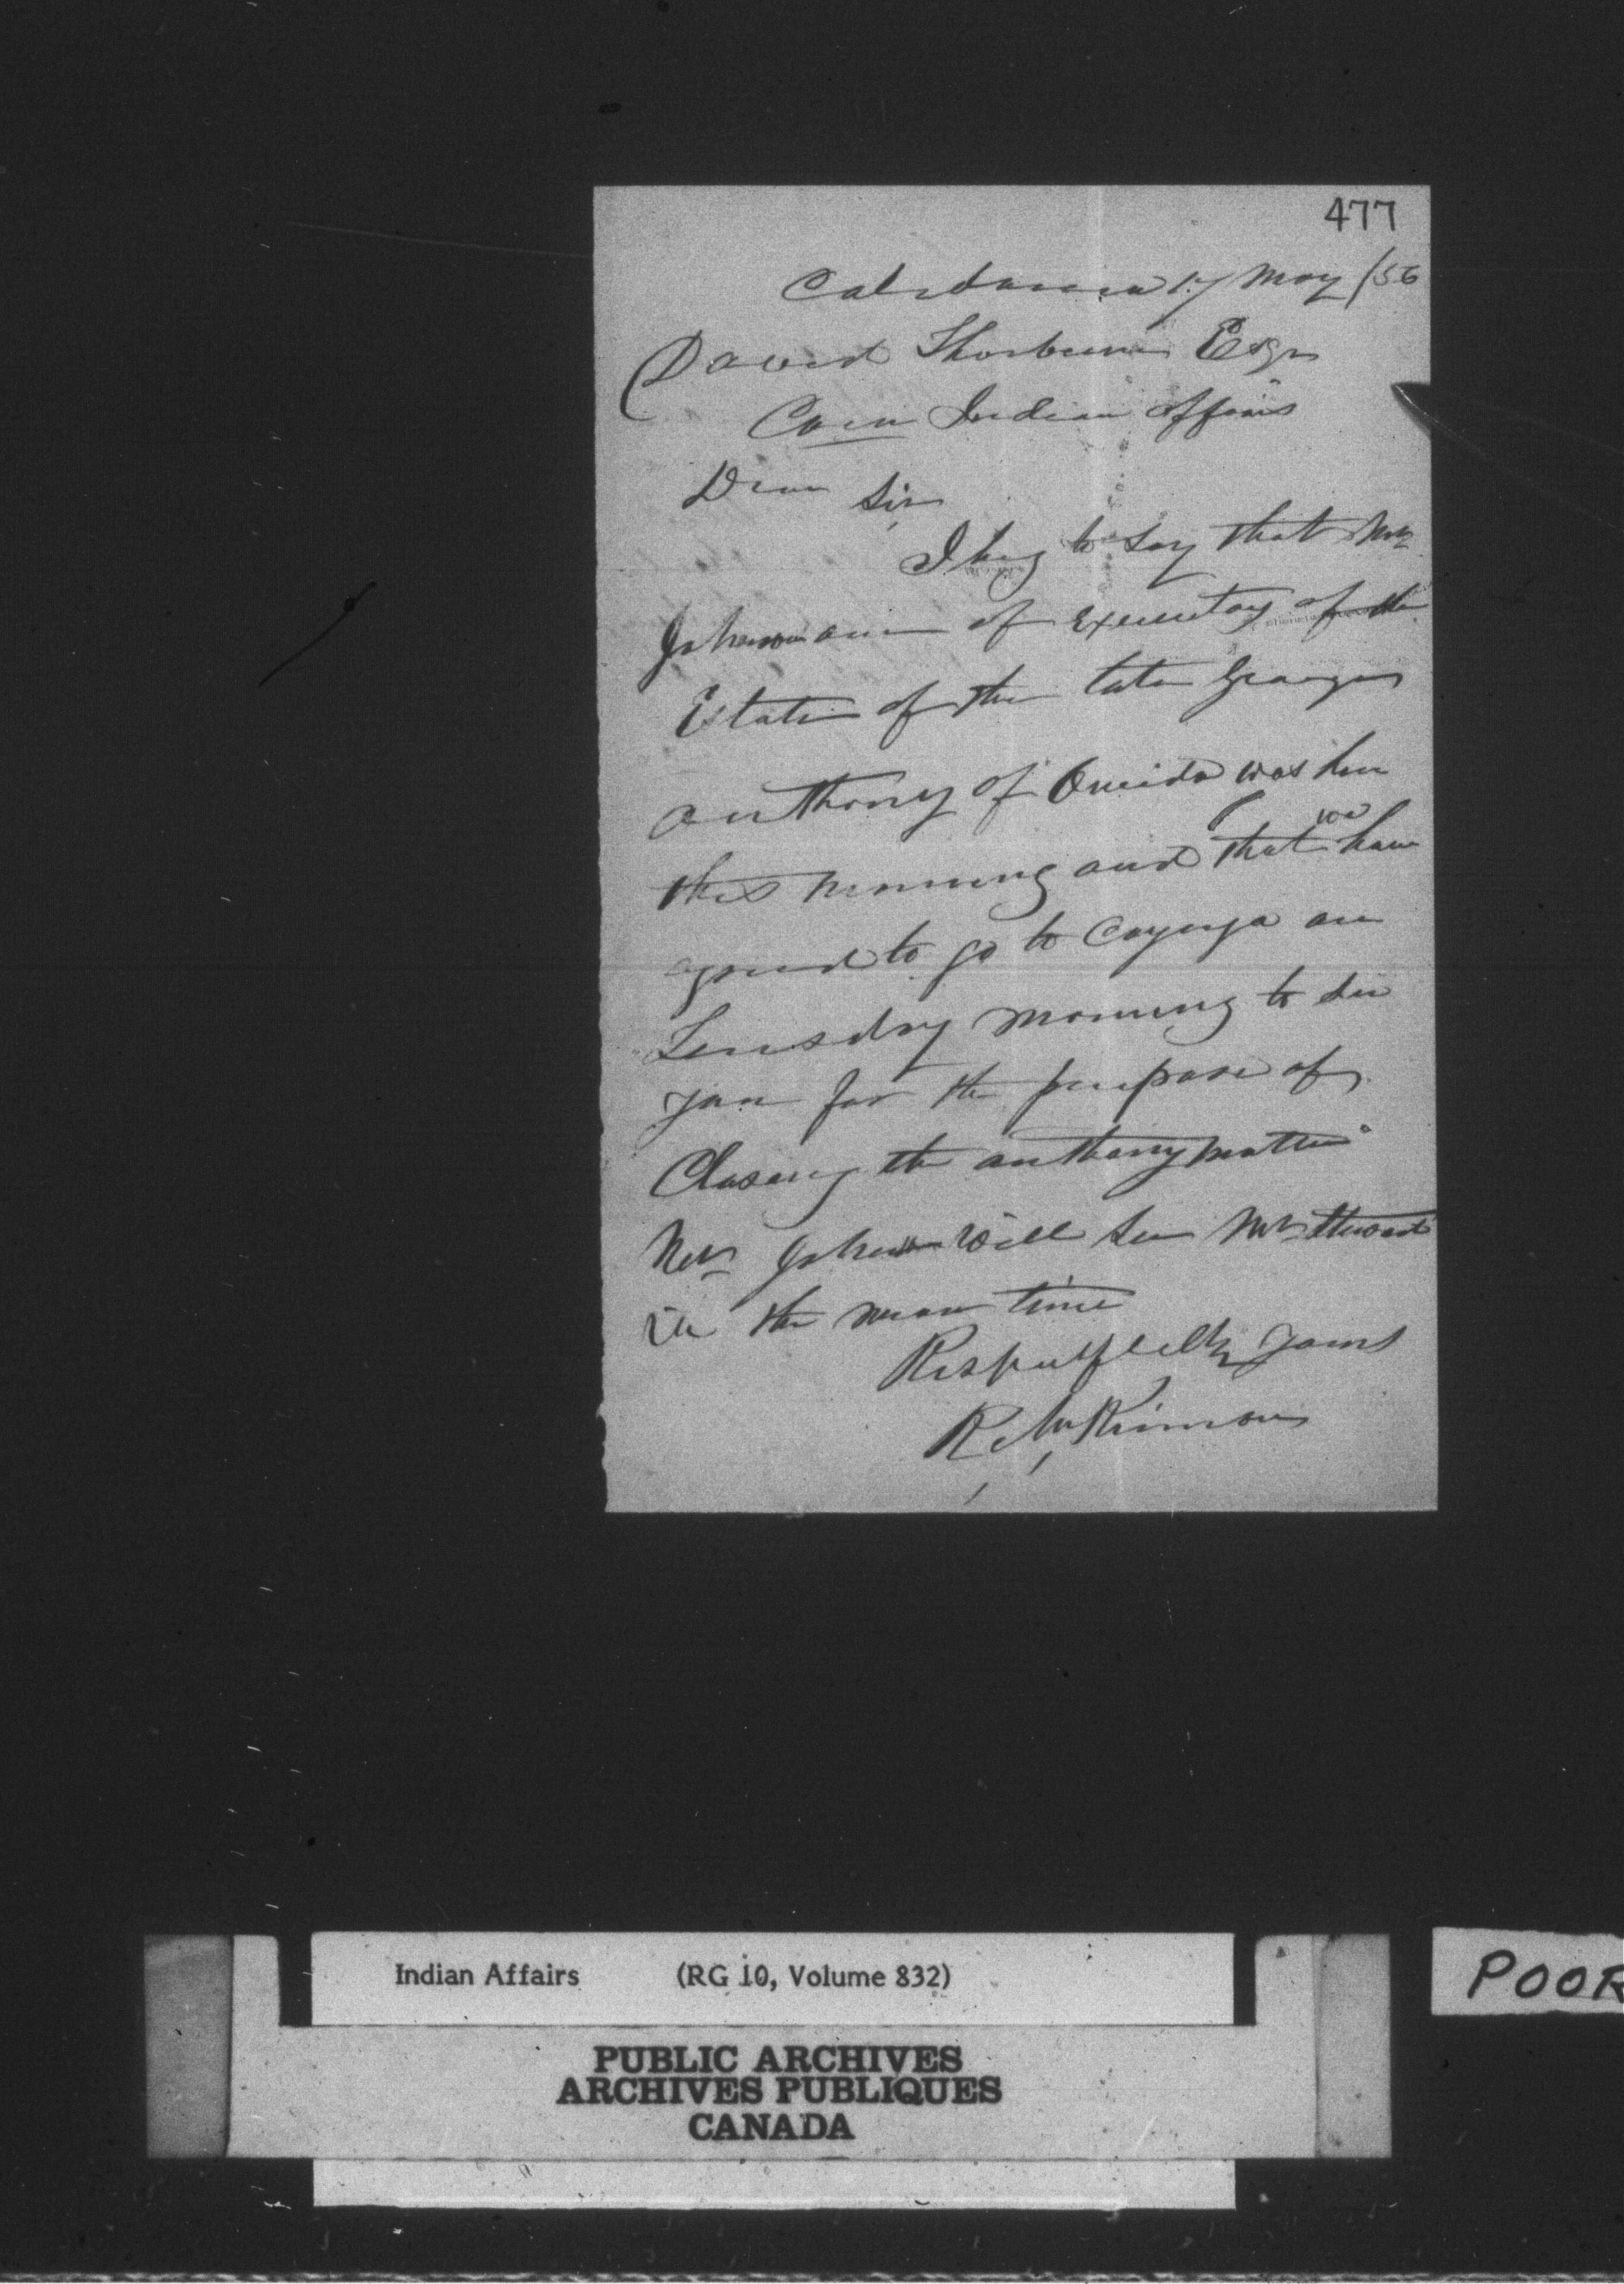 477
Caledonia 17 May /56
David Thorburn Esqr
Com Indian Affairs
Dear Sir
I beg to say that Mr
Johnson one of Executors of the
Estate of the late George
Anthony of Oneida was here
this morning and that we have
agreed to go to Cayuga on
Teusday morning to see
you for the purpose of
Closeing the Anthony matter
Mr Johnson will see Mr Steward
in the mean time
Respectfully yours
R McKinnon
Indian Affairs (RG 10, Volume 832)
PUBLIC ARCHIVES
ARCHIVES PUBLIQUES
CANADA
POOR